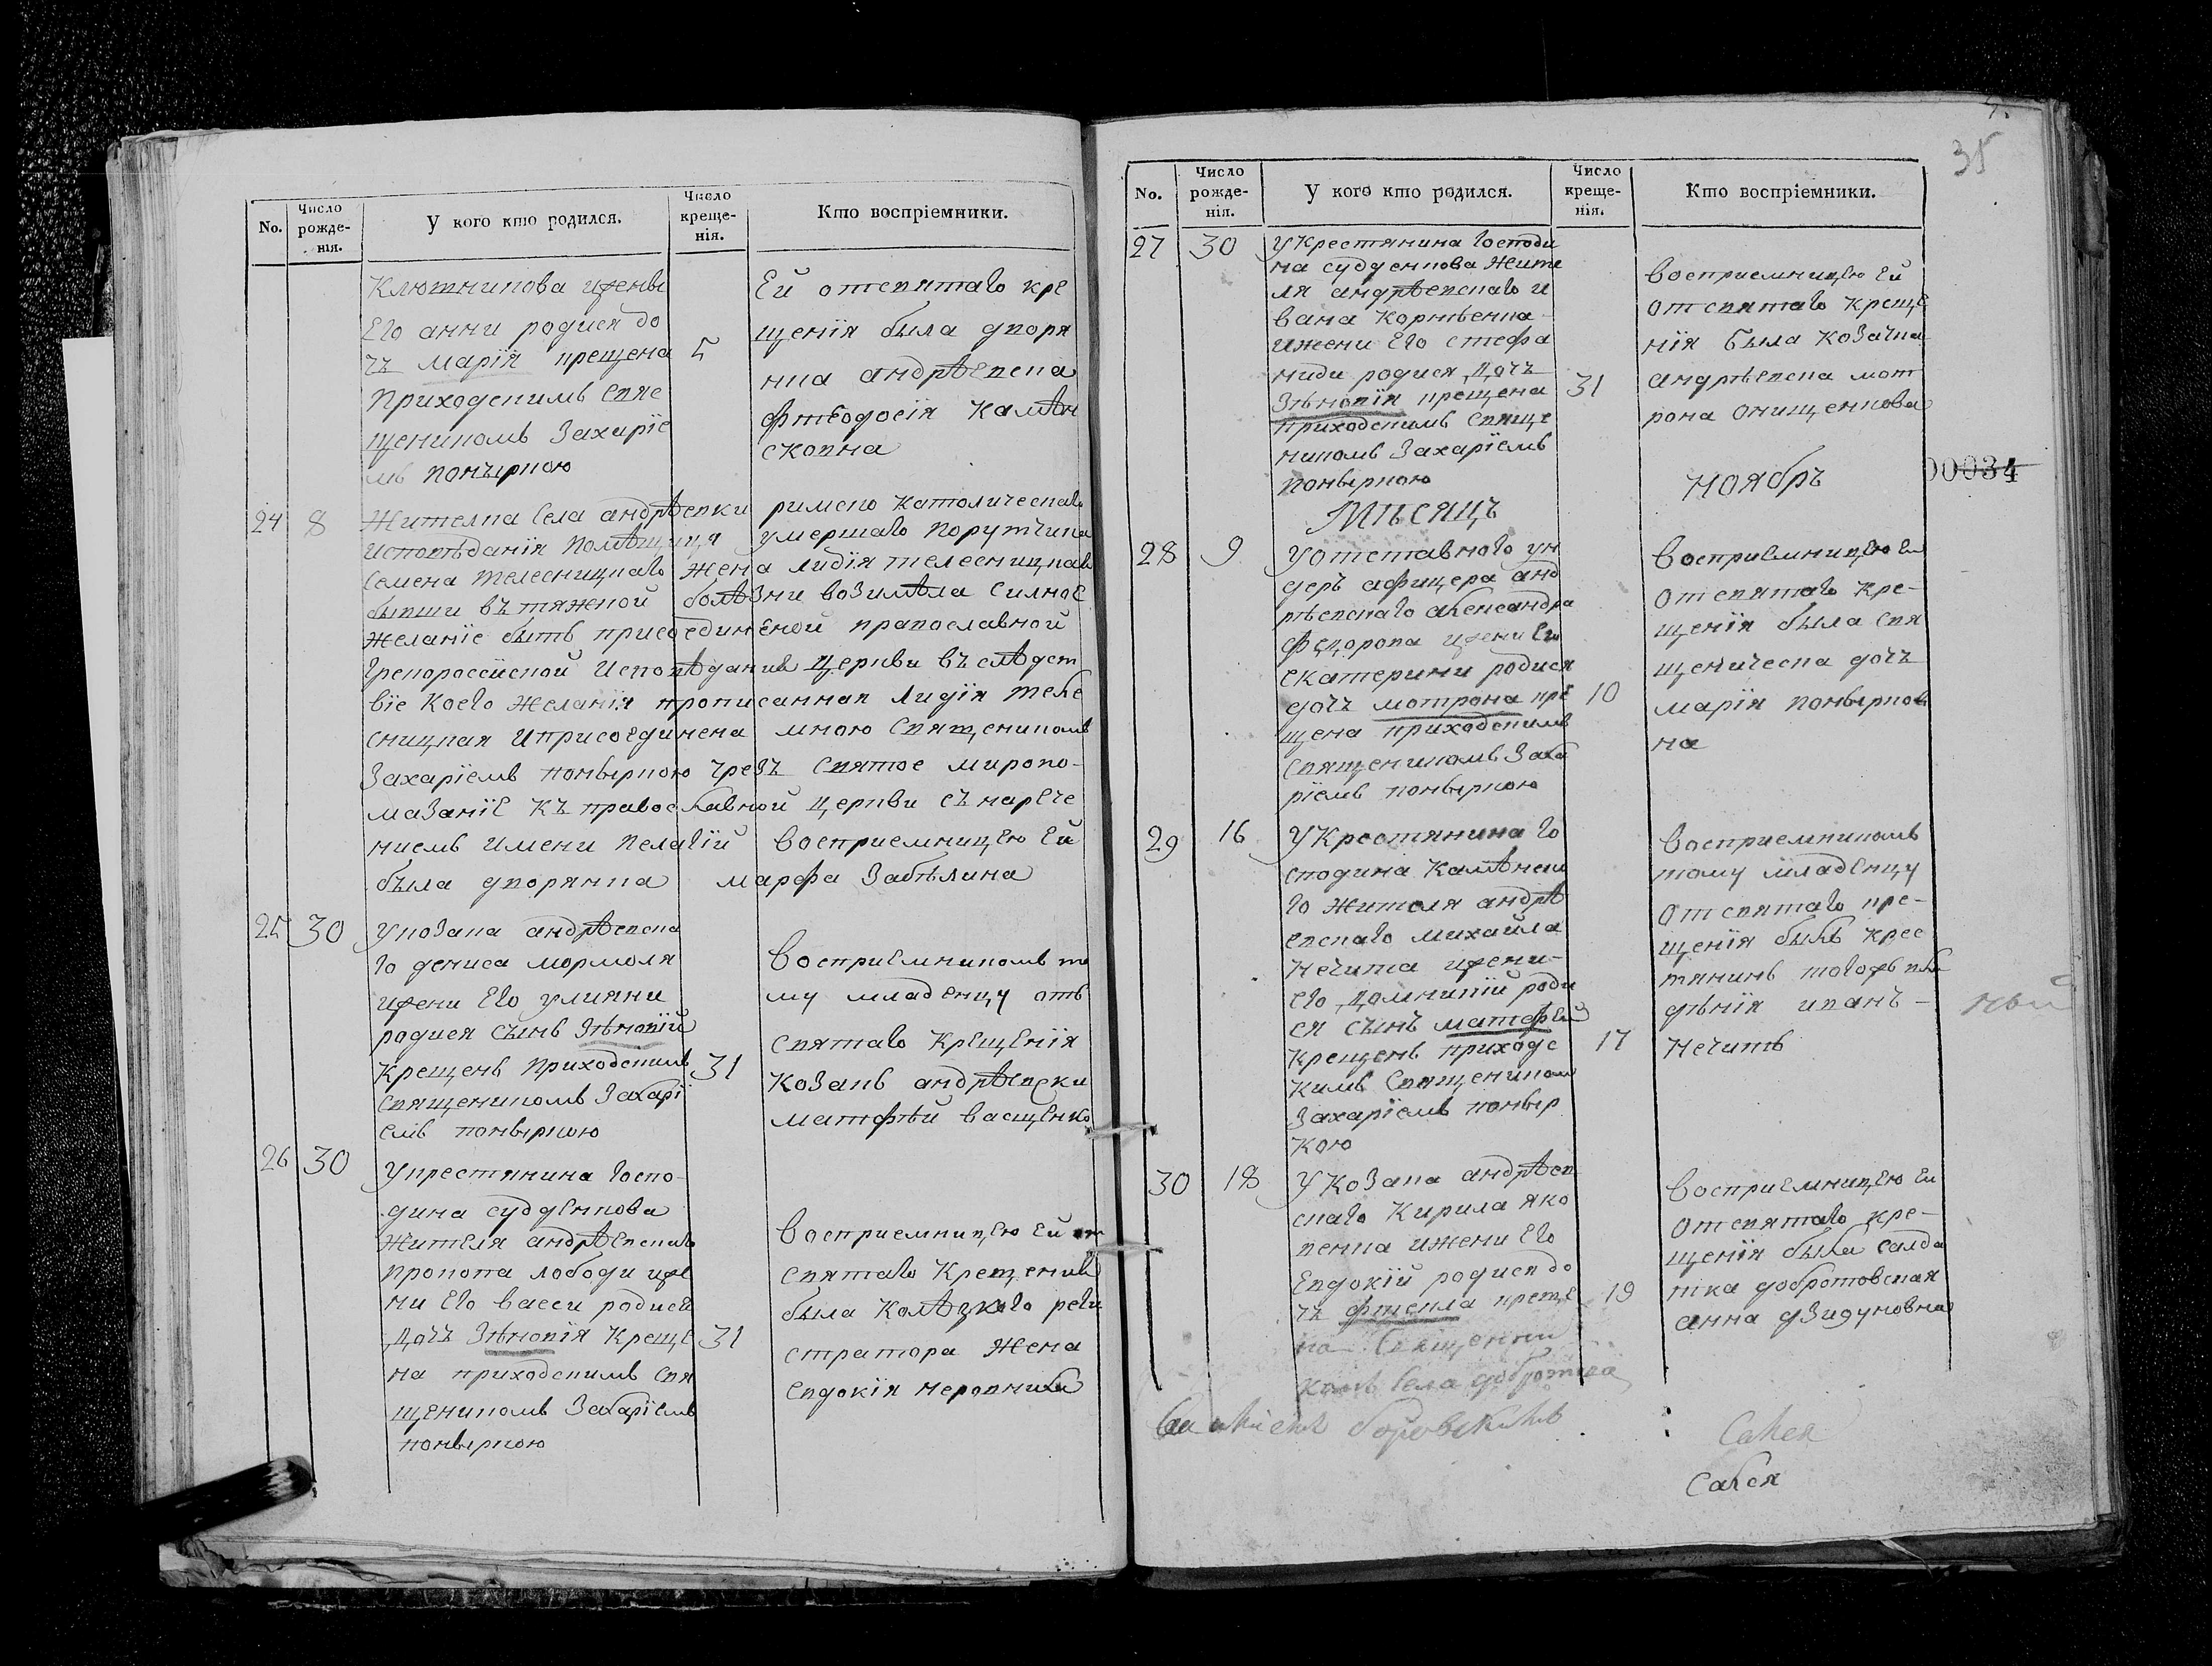 No.
Число рожде-нія.
У кого кто родился.
Число креще-нія.
Кто воспріемники.
Ключникова ижены
Его анни родися до
чъ марія крещена
5
Приходскимъ свяс
щеникомъ Захаріе
мъ конъіркою
Ей отсвятаго кре
щенія была дворя
нка андрѣевска
фтеодосія Камѣн
сковна
24 8
Жителка Села андрѣевки римско Католическаго
исповѣданія помѣщица умершаго порутчика
Семена телесницкаго жена лидія телесницкая
бывши въ тяжкой болѣзни возимѣла силное
желаніе быть присоединеной православной
грекороссійской Исповѣданія церкви въ слѣдст
віе Коего желанія прописанная лидія теле
сницкая и присоединена мною священикомъ
Захаріемъ конъіркою чрезъ святое миропо-
мазаніе къ православной церкви съ нарече
ниемъ имени пелагій восприемницею Ей
была дворянка марфа Забѣлина
25 30
Укозака андрѣевска
го дениса мормоля
ижени Его улияни
родися сынъ Зѣновій
Крещенъ приходскимъ
31
священикомъ Захарі
емъ конъіркою
Восприемникомъ то
му младенцу отъ
святаго Крещенія
Козакъ андрѣевски
матфѣй васщенко
26 30
Укрестянина госпо-
дина судденкова
жителя андрѣевскаго
прокопа лободи иже
ни Его васси родися
дочъ Зѣновія Креще
31
на приходскимъ свя
щеникомъ Захаріемъ
конъіркою
Восприемницею Ей от
святаго Крещения
была Колѣзкого реги
стратора жена
Евдокія
No.
Число рожде-нія.
У кого кто родился.
Число креще-нія.
Кто воспріемники.
35
27 30
УКрестянина господи
на судденкова жите
ля андрѣевскаго и
вана Корнѣенка
ижени Его стефа
ниди родися дочъ
Зѣновія крещена
31
приходскимъ свяще
никомъ Захаріемъ
конъіркою
восприемницею Ей
отсвятаго Креще
нія была Козачка
андрѣевска мот
рона онищенкова
00034
Мѣсяцъ
Ноябръ
28 9
Уотставного ун
деръ афицера анд
рѣевскаго александра
федорова ижени Его
екатерини родися
дочъ мотрона кре
10
щена приходскимъ
священикомъ Заха
ріемъ конъіркою
восприемницею Ей
отсвятаго Кре-
щенія была свя
щеническа дочъ
марія конъірков
на
29 16
УКрестянина го
сподина Камѣнско
го жителя андрѣ
евскаго михайла
Нечита ижени-
его домникій роди
ся сынъ матфей
крещенъ приходс
17
кимъ священиком
Захаріемъ конъір
кою
восприемникомъ
тому младенцу
отсвятаго кре-
щенія былъ крес
тянинъ тогожъ влa
дѣнія иванъ -
Нечитъ
30 18
У Козака андрѣев
скаго Кирила яко
венка ижени Его
Евдокій родися до
чъ фтекла креще
19
на Священни
комъ Села добротова
восприемницею Ей
отсвятаго кре-
щенія была салда
тка добротовская
анна дзидуновна